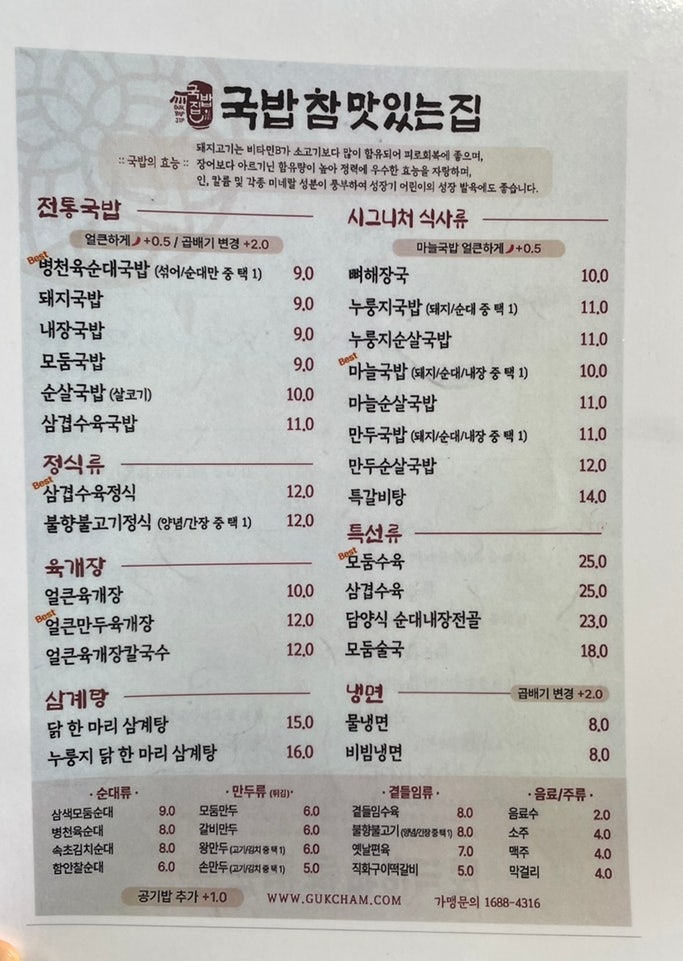 국밥집
국밥 참 맛있는 집
:: 국밥의 효능 ::
돼지고기는 비타민B가 소고기보다 많이 함유되어 피로회복에 좋으며,
장어보다 아르기닌 함유량이 높아 정력에 우수한 효능을 자랑하며,
인, 칼륨 및 각종 미네랄 성분이 풍부하여 성장기 어린이의 성장 발육에도 좋습니다.
전통국밥
얼큰하게 +0.5 / 곱배기 변경 +2.0
Best
병천육순대국밥 (섞어/순대만 중 택 1) 9.0
돼지국밥 9.0
내장국밥 9.0
모둠국밥 9.0
순살국밥 (살코기) 10.0
삼겹수육국밥 11.0
정식류
Best
삼겹수육정식 12.0
불향불고기정식 (양념/간장 중 택 1) 12.0
육개장
얼큰육개장 10.0
Best
얼큰만두육개장 12.0
얼큰육개장칼국수 12.0
삼계탕
닭 한 마리 삼계탕 15.0
누룽지 닭 한 마리 삼계탕 16.0
시그니처 식사류
마늘국밥 얼큰하게 +0.5
뼈해장국 10.0
누룽지국밥 (돼지/순대 중 택 1) 11.0
누룽지순살국밥 11.0
Best
마늘국밥 (돼지/순대/내장 중 택 1) 10.0
마늘순살국밥 11.0
만두국밥 (돼지/순대/내장 중 택 1) 11.0
만두순살국밥 12.0
특갈비탕 14.0
특선류
Best
모둠수육 25.0
삼겹수육 25.0
담양식 순대내장전골 23.0
모둠술국 18.0
냉면 곱배기 변경 +2.0
물냉면 8.0
비빔냉면 8.0
· 순대류 ·
삼색모둠순대 9.0
병천육순대 8.0
속초김치순대 8.0
함안찰순대 6.0
· 만두류 (튀김) ·
모둠만두 6.0
갈비만두 6.0
왕만두 (고기/김치 중 택 1) 6.0
손만두 (고기/김치 중 택 1) 5.0
· 곁들임류 ·
곁들임수육 8.0
불향불고기 (양념/간장 중 택 1) 8.0
옛날편육 7.0
직화구이떡갈비 5.0
· 음료/주류 ·
음료수 2.0
소주 4.0
맥주 4.0
막걸리 4.0
공기밥 추가 +1.0
WWW.GUKCHAM.COM
가맹문의 1688-4316